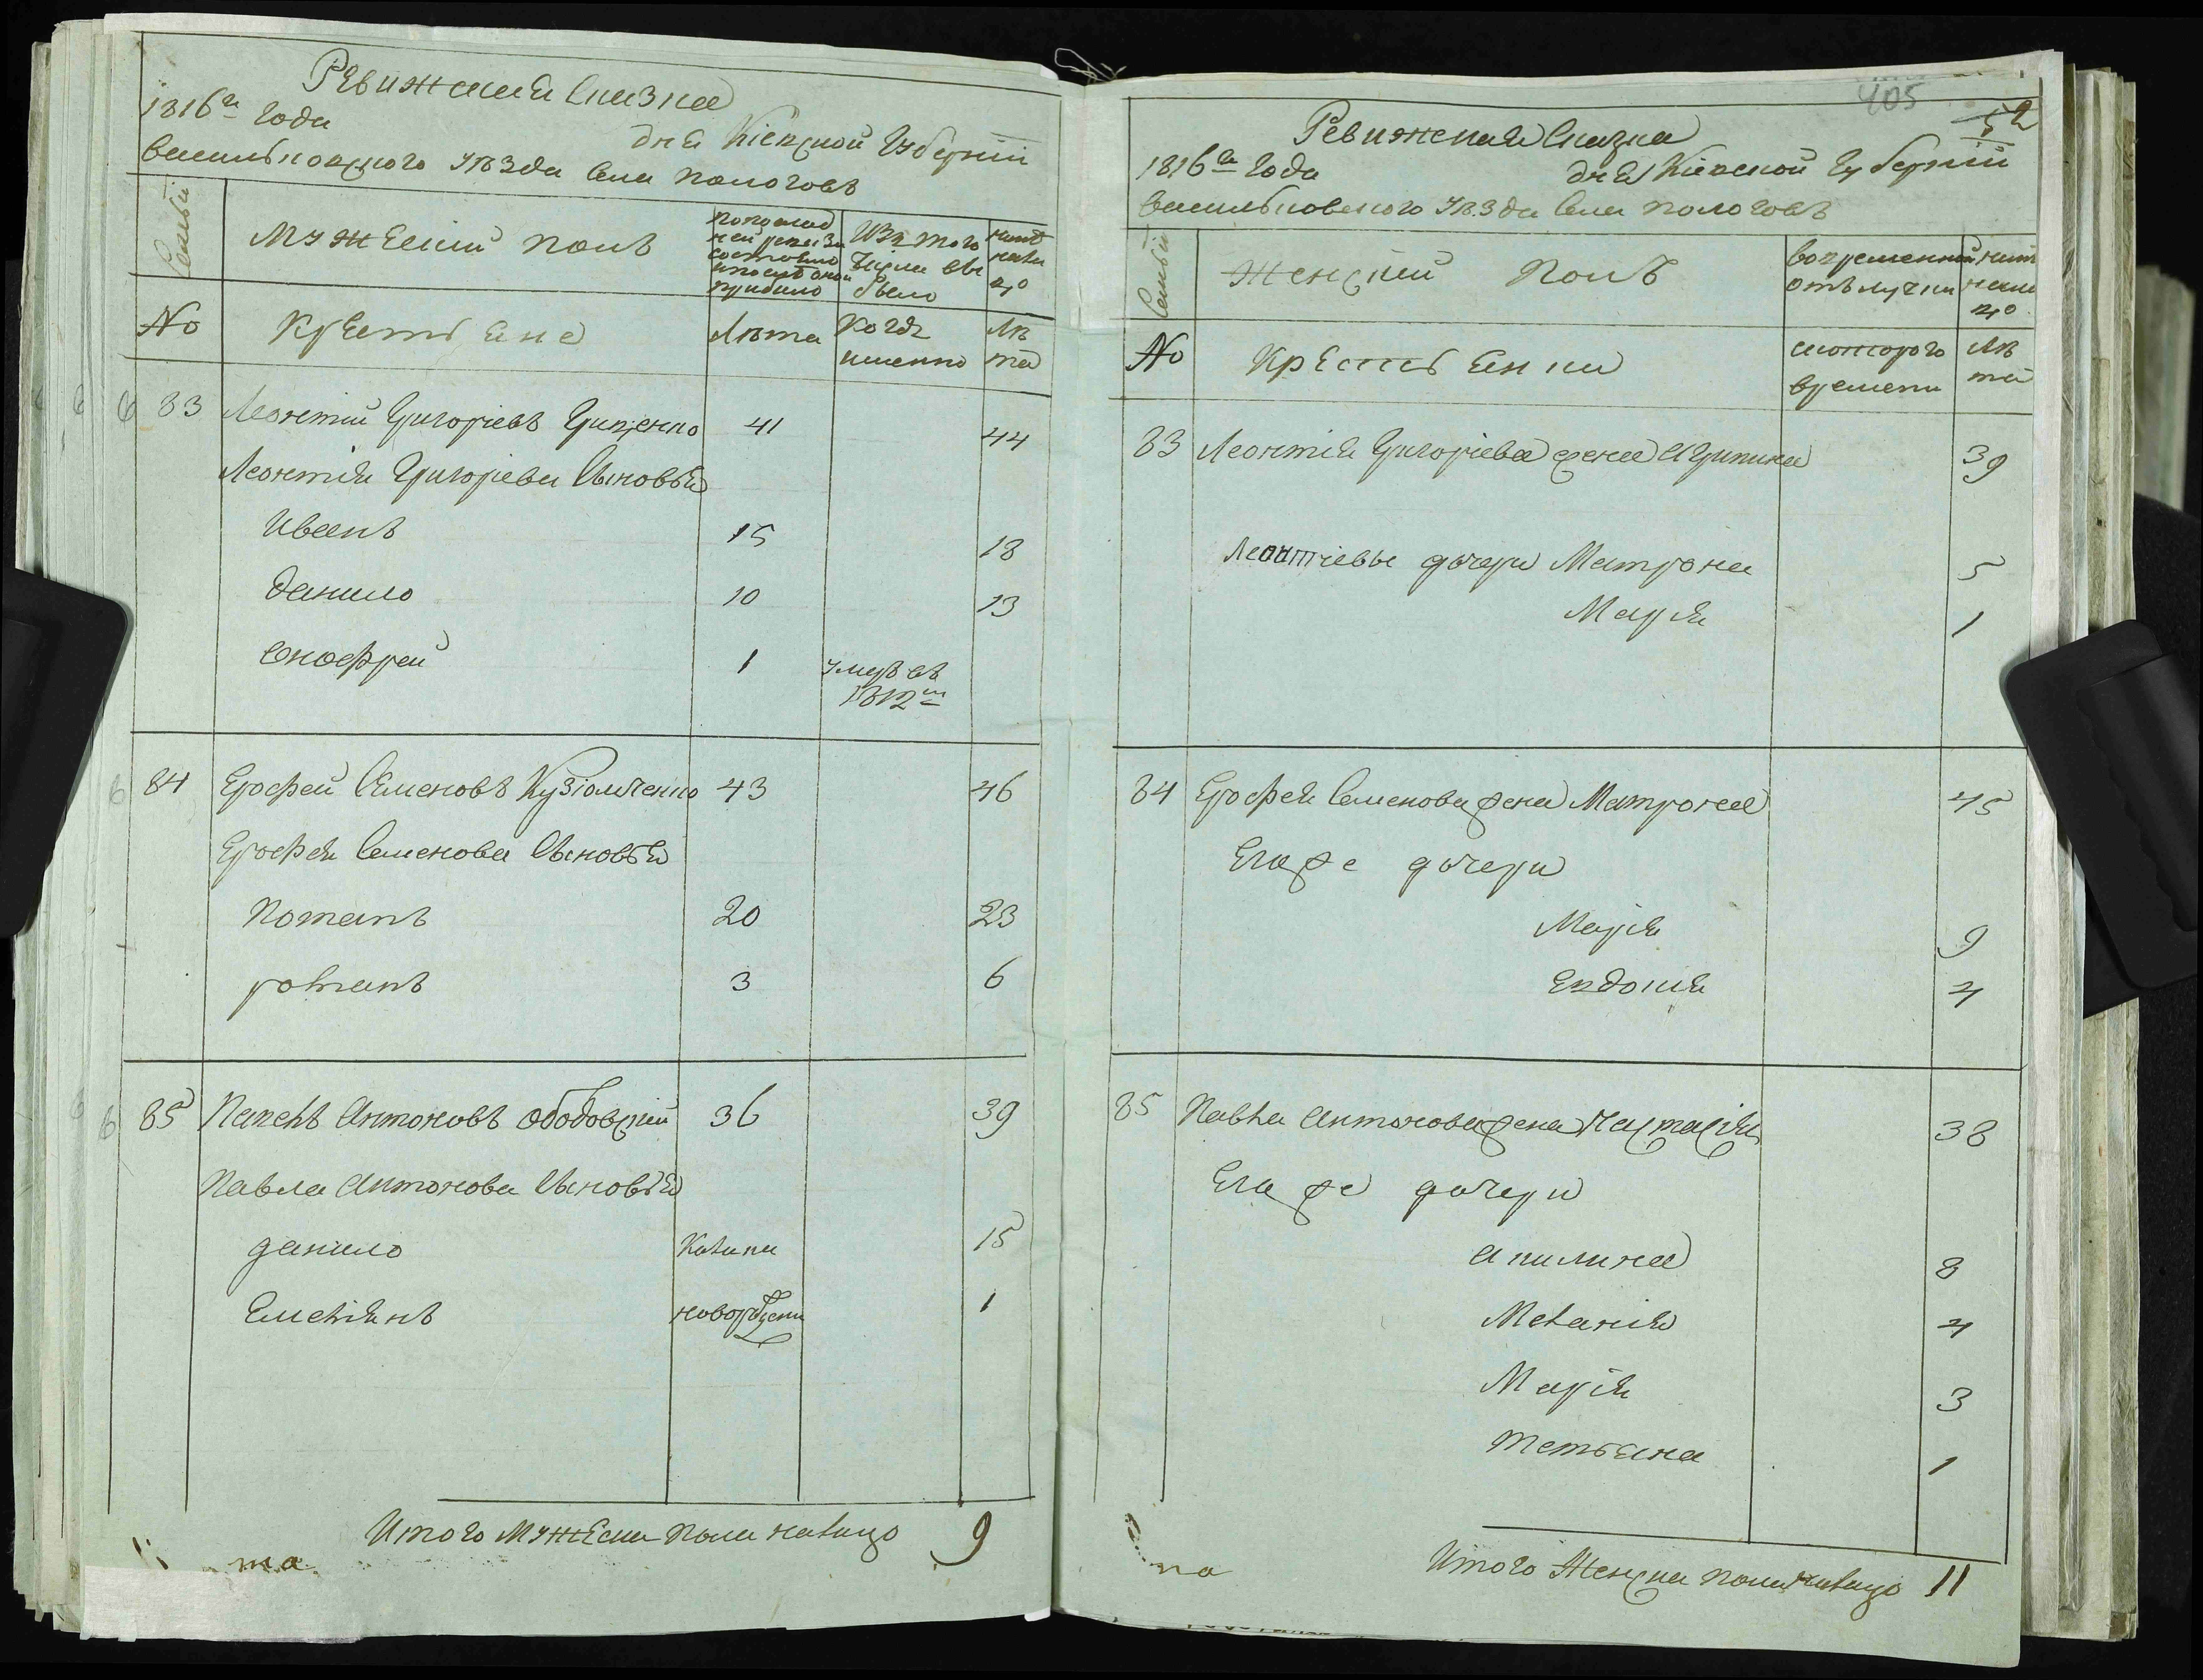 Ревижская сказка
1816го года дня Кіевской Губерніи
васильковского уезда села пологовъ
Семьи
Мужеский полъ
по последней ревизіи состояло и после оной прибыло
Изъ того числа выбыло
ныне на лицо
№
Крестьяне
Лета
Когда именно
Лета
83 Леонтий Григоріевъ Грищенко 41 44
Леонтия Григоріева Сыновья
Иванъ 15 18
Данило 10 13
Онофрей 1 умеръ въ 1812м
84 Ерофей Семеновъ Кузіомченко 43 46
Ерофея Семенова Сыновья
Потапъ 20 23
романъ 3 6
85 Павелъ Антоновъ Ободовский 36 39
Павла Антонова Сыновья
данило 15
Емельянъ новорожден 1
Итого Мужеска пола налицо 9
та
405
Ревижская Сказка
1816го года дня Кіевской Губерніи
васильковского уезда села пологовъ
Семьи
Женский Полъ
во временной отълучки
ныне налицо
№
Крестьянки
с которого времени
Лета
83 Леонтия Григоріева жена Агрипина 39
Леонтіевы дочери Матрона 5
Мария 1
84 Ерофея Семенова жена Матрона 45
Его же дочери
Марія 9
Евдокия 4
85 Павла Антонова жена Настасія 38
Его же дочери
Акилина 8
Мелания 4
Марія 3
Тетьяна 1
Итого Женска пола налицо 11